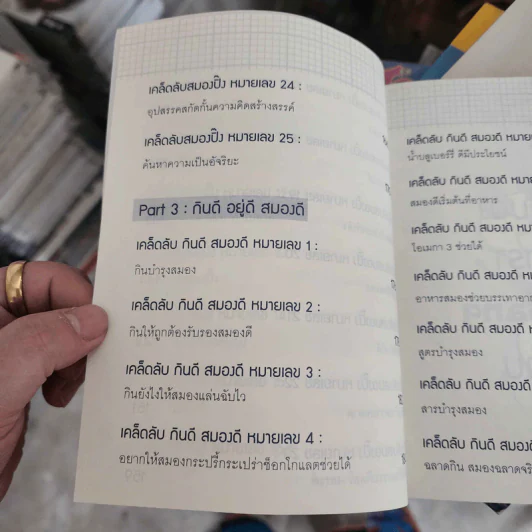 เคล็ดลับสมองปิ๊ง หมายเลข 24 :
อุปสรรคสกัดกั้นความคิดสร้างสรรค์
เคล็ดลับสมองปิ๊ง หมายเลข 25 :
ค้นหาความเป็นอัจริยะ
Part 3 : กินดี อยู่ดี สมองดี
เคล็ดลับ กินดี สมองดี หมายเลข 1 :
กินบำรุงสมอง
เคล็ดลับ กินดี สมองดี หมายเลข 2 :
กินให้ถูกต้องรับรองสมองดี
เคล็ดลับ กินดี สมองดี หมายเลข 3 :
กินยังไงให้สมองแล่นฉับไว
เคล็ดลับ กินดี สมองดี หมายเลข 4 :
อยากให้สมองกระปรี้กระเปร่าช็อกโกแลตช่วยได้
เคล็ดลับ กินดี สมองดี
น้ำบลูเบอร์รี่ ดีมีประโยชน์
เคล็ดลับ กินดี สมองดี
สมองดีเริ่มต้นที่อาหาร
เคล็ดลับ กินดี สมองดี
โอเมกา 3 ช่วยได้
เคล็ดลับ กินดี สมองดี
อาหารสมองช่วยบรรเทา
เคล็ดลับ กินดี สมองดี
สูตรบำรุงสมอง
เคล็ดลับ กินดี สมองดี
สารบำรุงสมอง
เคล็ดลับ กินดี สมองดี
ฉลาดกิน สมองฉลาด